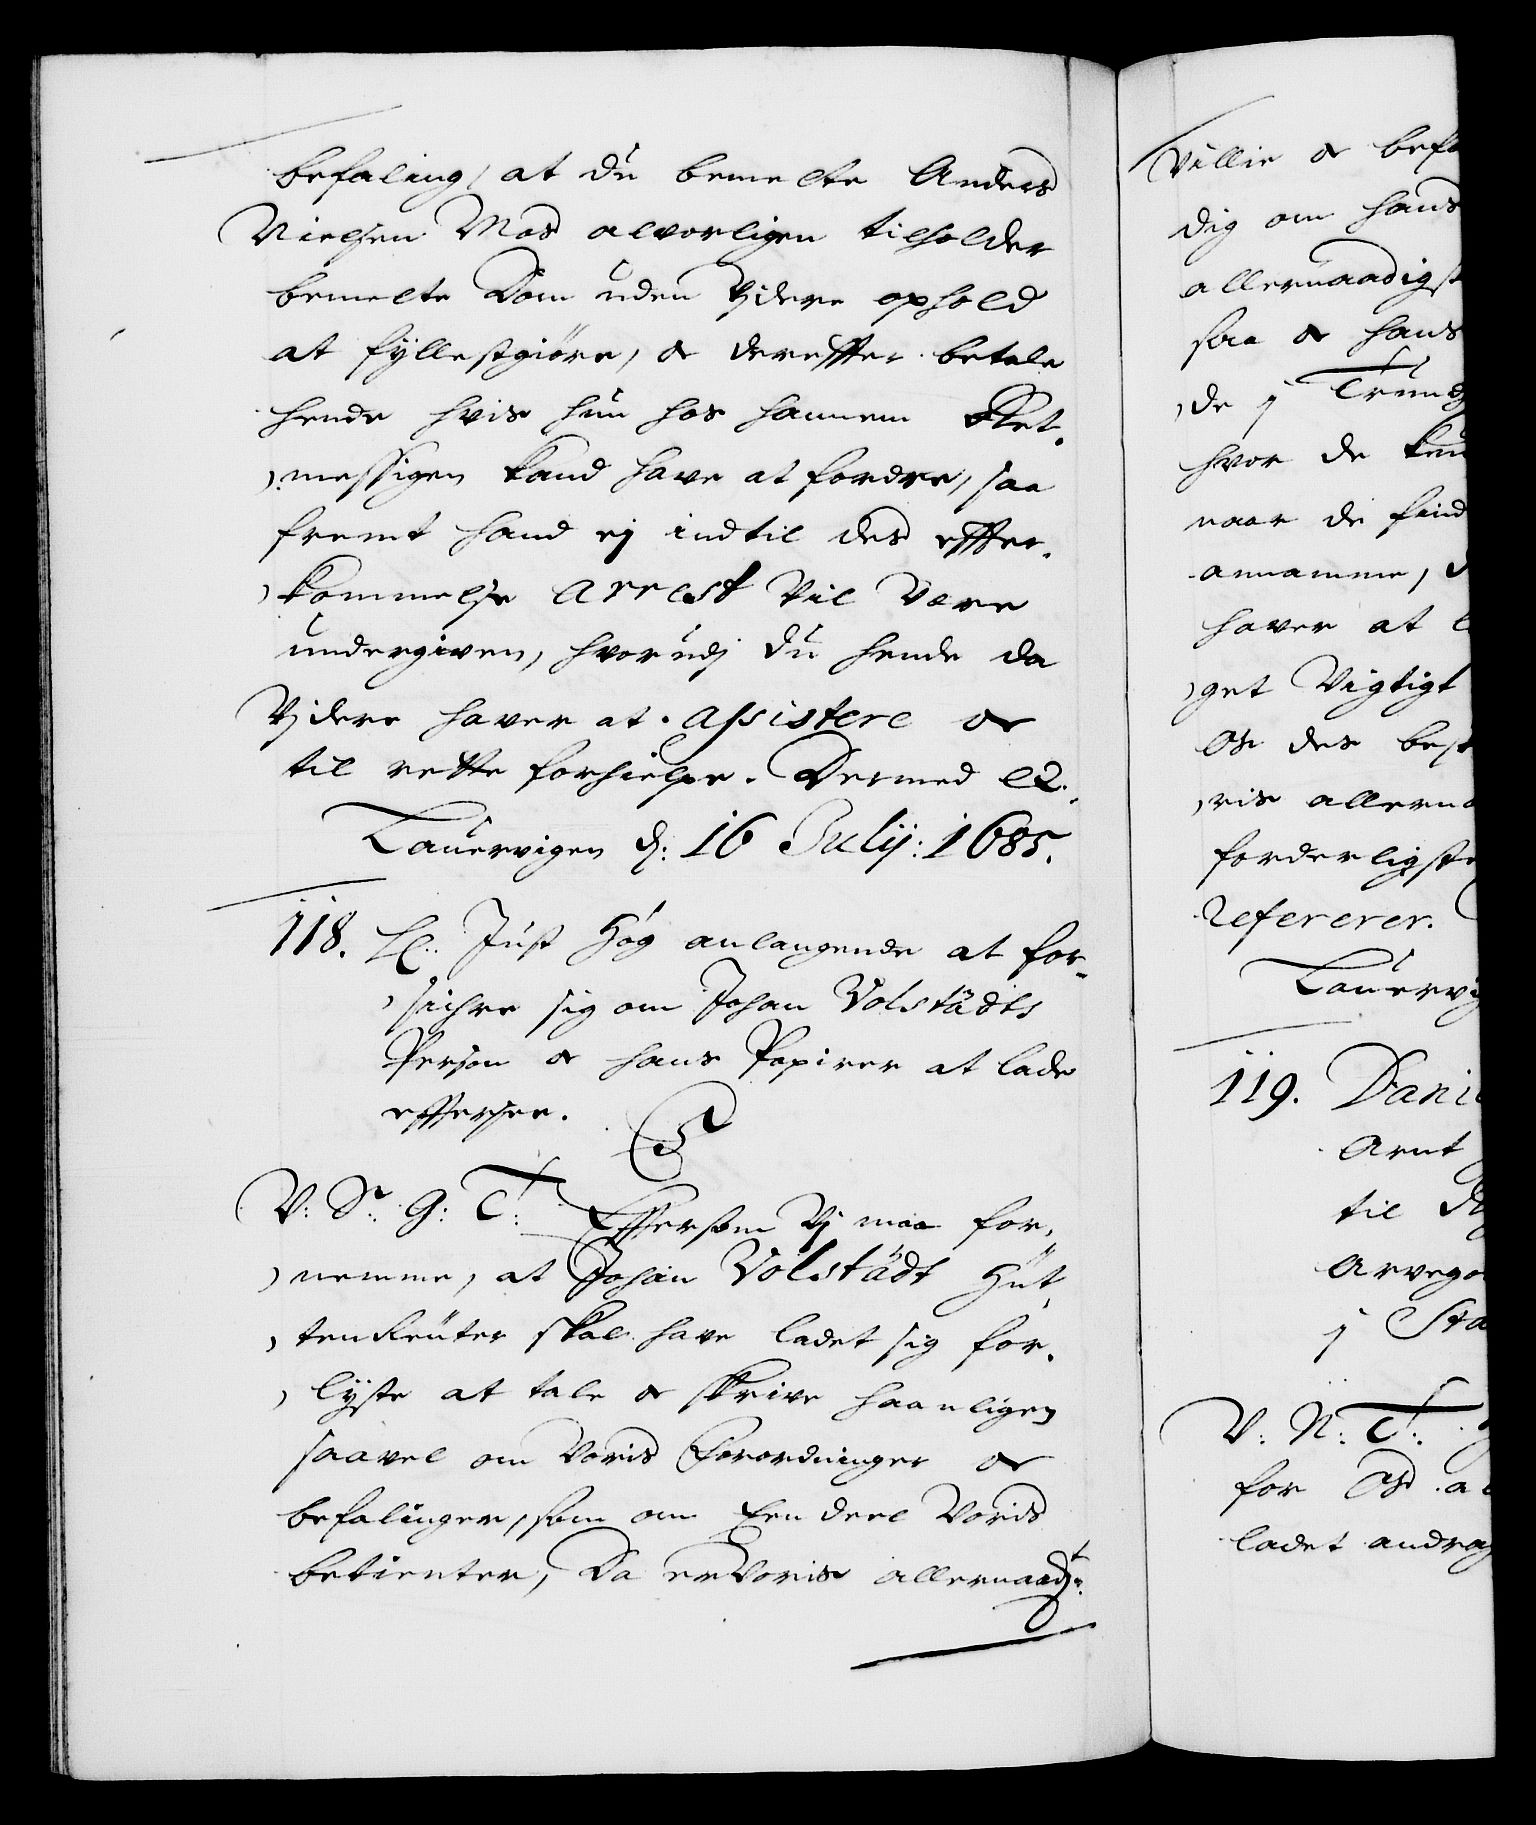 befaling, at du bemelte Anders
Nielsen Mos alvorligen tilholder
bemelte Dom uden Videre ophold
at fyllestgiøre, & dereffter betale
hende hvis hun hos hannem Ret-
messigen kand have at fordre, saa
fremt hand ej indtil des effter-
kommelse arrest Vil Være
undergiven, hvorudj du hende da
Vjdere haver at assistere &
til rette forhielpe. Dermed etc.
Lauervigen d: 16 Julij: 1685.
118. H: Just Høg anlangende at for-
sichre sig om Johan Volstädts
Person & hans Papirer at lade
efftersee.
C5
V: S: G: T: Efftersom Vj maa for-
nemme, at Johan Volstädt Hüt-
tenreuter skal have ladet sig for-
lyste at tale & skrive haanligen
saavel om Voris forordninger &
befalinger, som om Een deel Voris
betienter, Da er Voris allernaadt:
Villie & befa
dig om hans
allernaadigst
saa & hans
de j Trund
hvor de kun
naar de find
annamme, d
haver at l
get Vigtigt
Os des best
ris allerna
forderligste
referere.
Lauervig
119. Dani
Arnt
til
Arvego
j Sta
V: N: T:
for Os a
ladet andrag